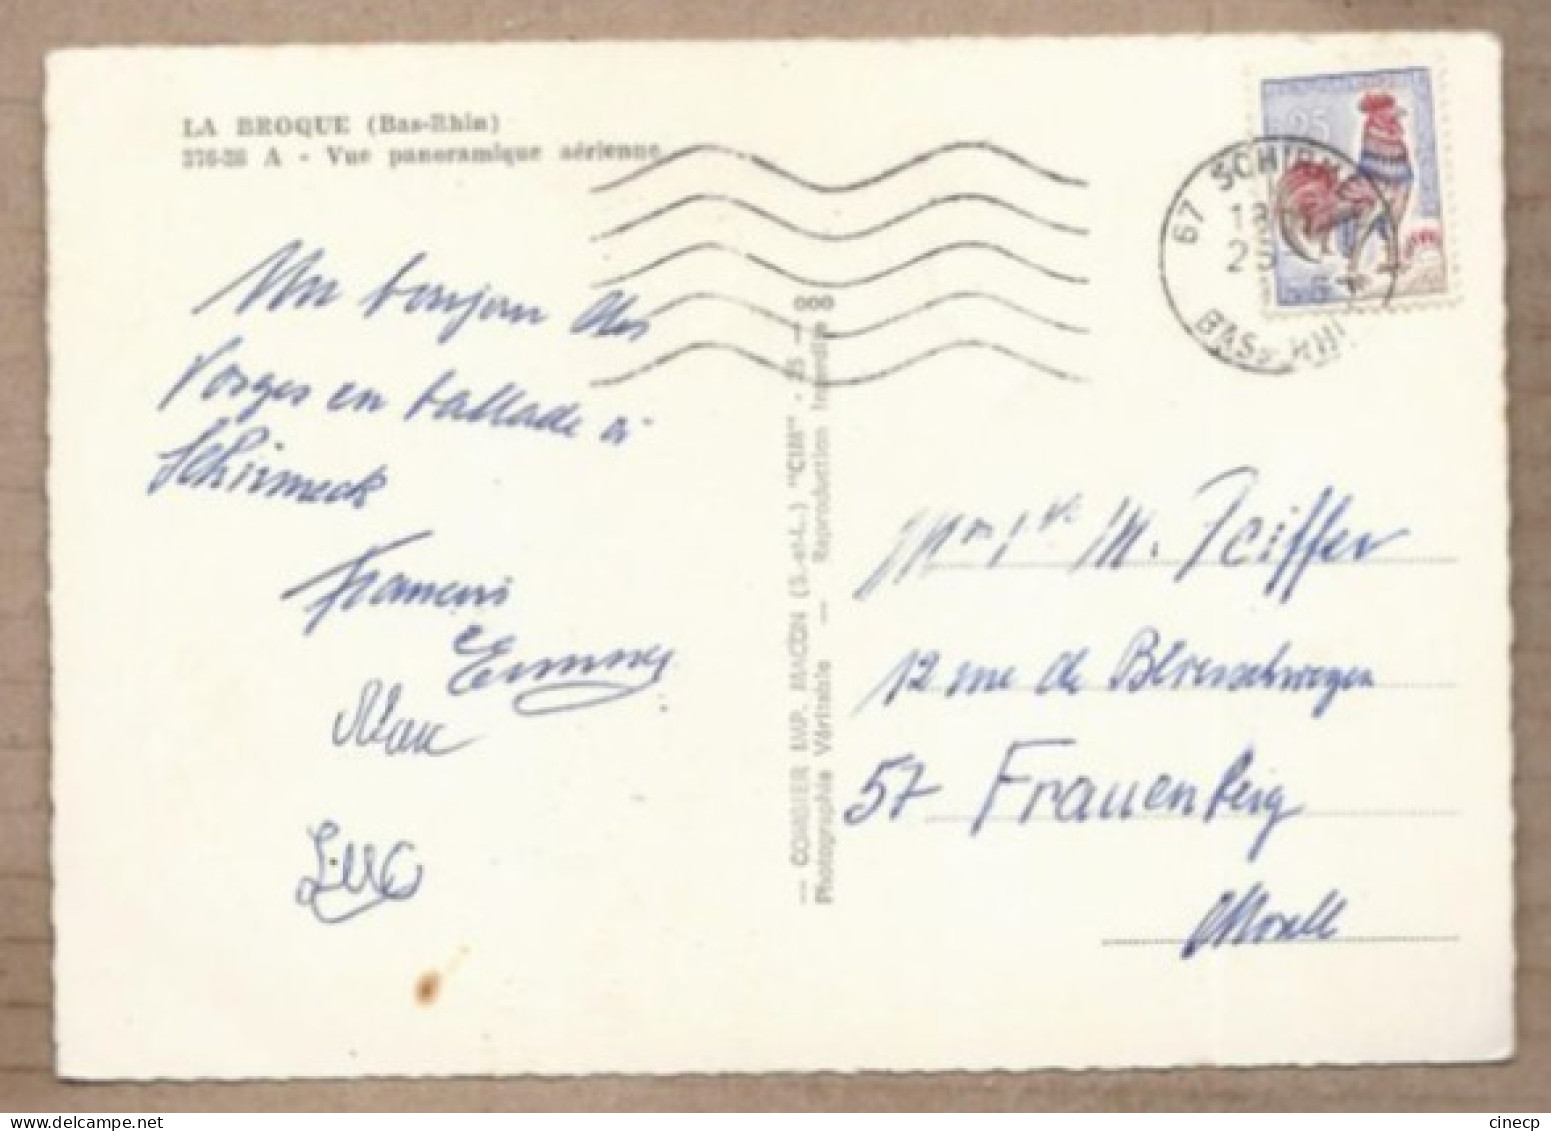 LA BROQUE (Bas-Rhin)
376-26 A - Vue panoramique aérienne
Un bonjour des
Vosges en ballade à
Schirmeck
Emmy
Marc
Luc
— COMBIER IMP. MACON (S.-et-L.) "CIM"
Photographie Véritable — Reproduction Interdite
000
25
67 SCHIRME
BAS-RHI
M. Pfeiffer
12 rue de Bliesschweyen
57 Frauenberg
Moselle
cinecp